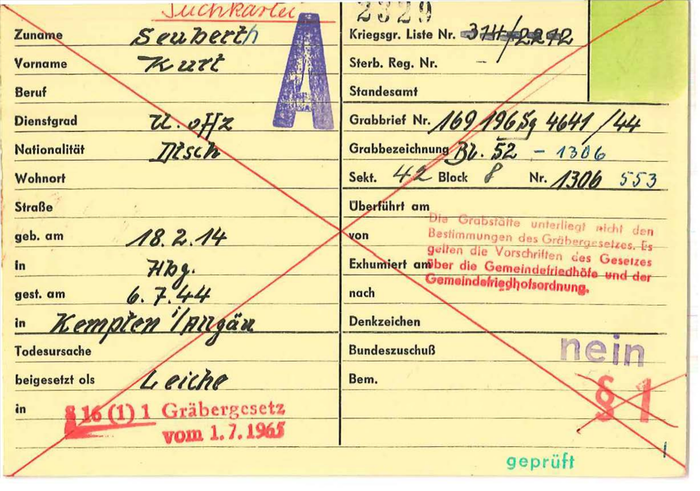 Suchkartei
Zuname Seuberth
Vorname Kurt
Beruf
Dienstgrad U.offz
Nationalität Dtsch
Wohnort
Straße
geb. am 18.2.14
in Hbg.
gest. am 6.7.44
in Kempten i/Allgäu
Todesursache
beigesetzt als Leiche
in § 16 (1) 1 Gräbergesetz
vom 1.7.1965
A
2329
Kriegsgr. Liste Nr. 314/2212
Sterb. Reg. Nr. -
Standesamt
Grabbrief Nr. 169 196 4641/44
Grabbezeichnung Bl. 52 - 1306
Sekt. 42 Block 8 Nr. 1306 553
Überführt am
von
Exhumiert am
nach
Die Grabstätte unterliegt nicht den
Bestimmungen des Gräbergesetzes. Es
gelten die Vorschriften des Gesetzes
über die Gemeindefriedhöfe und der
Gemeindefriedhofsordnung.
Denkzeichen
Bundeszuschuß nein
Bem.
§ 1
geprüft